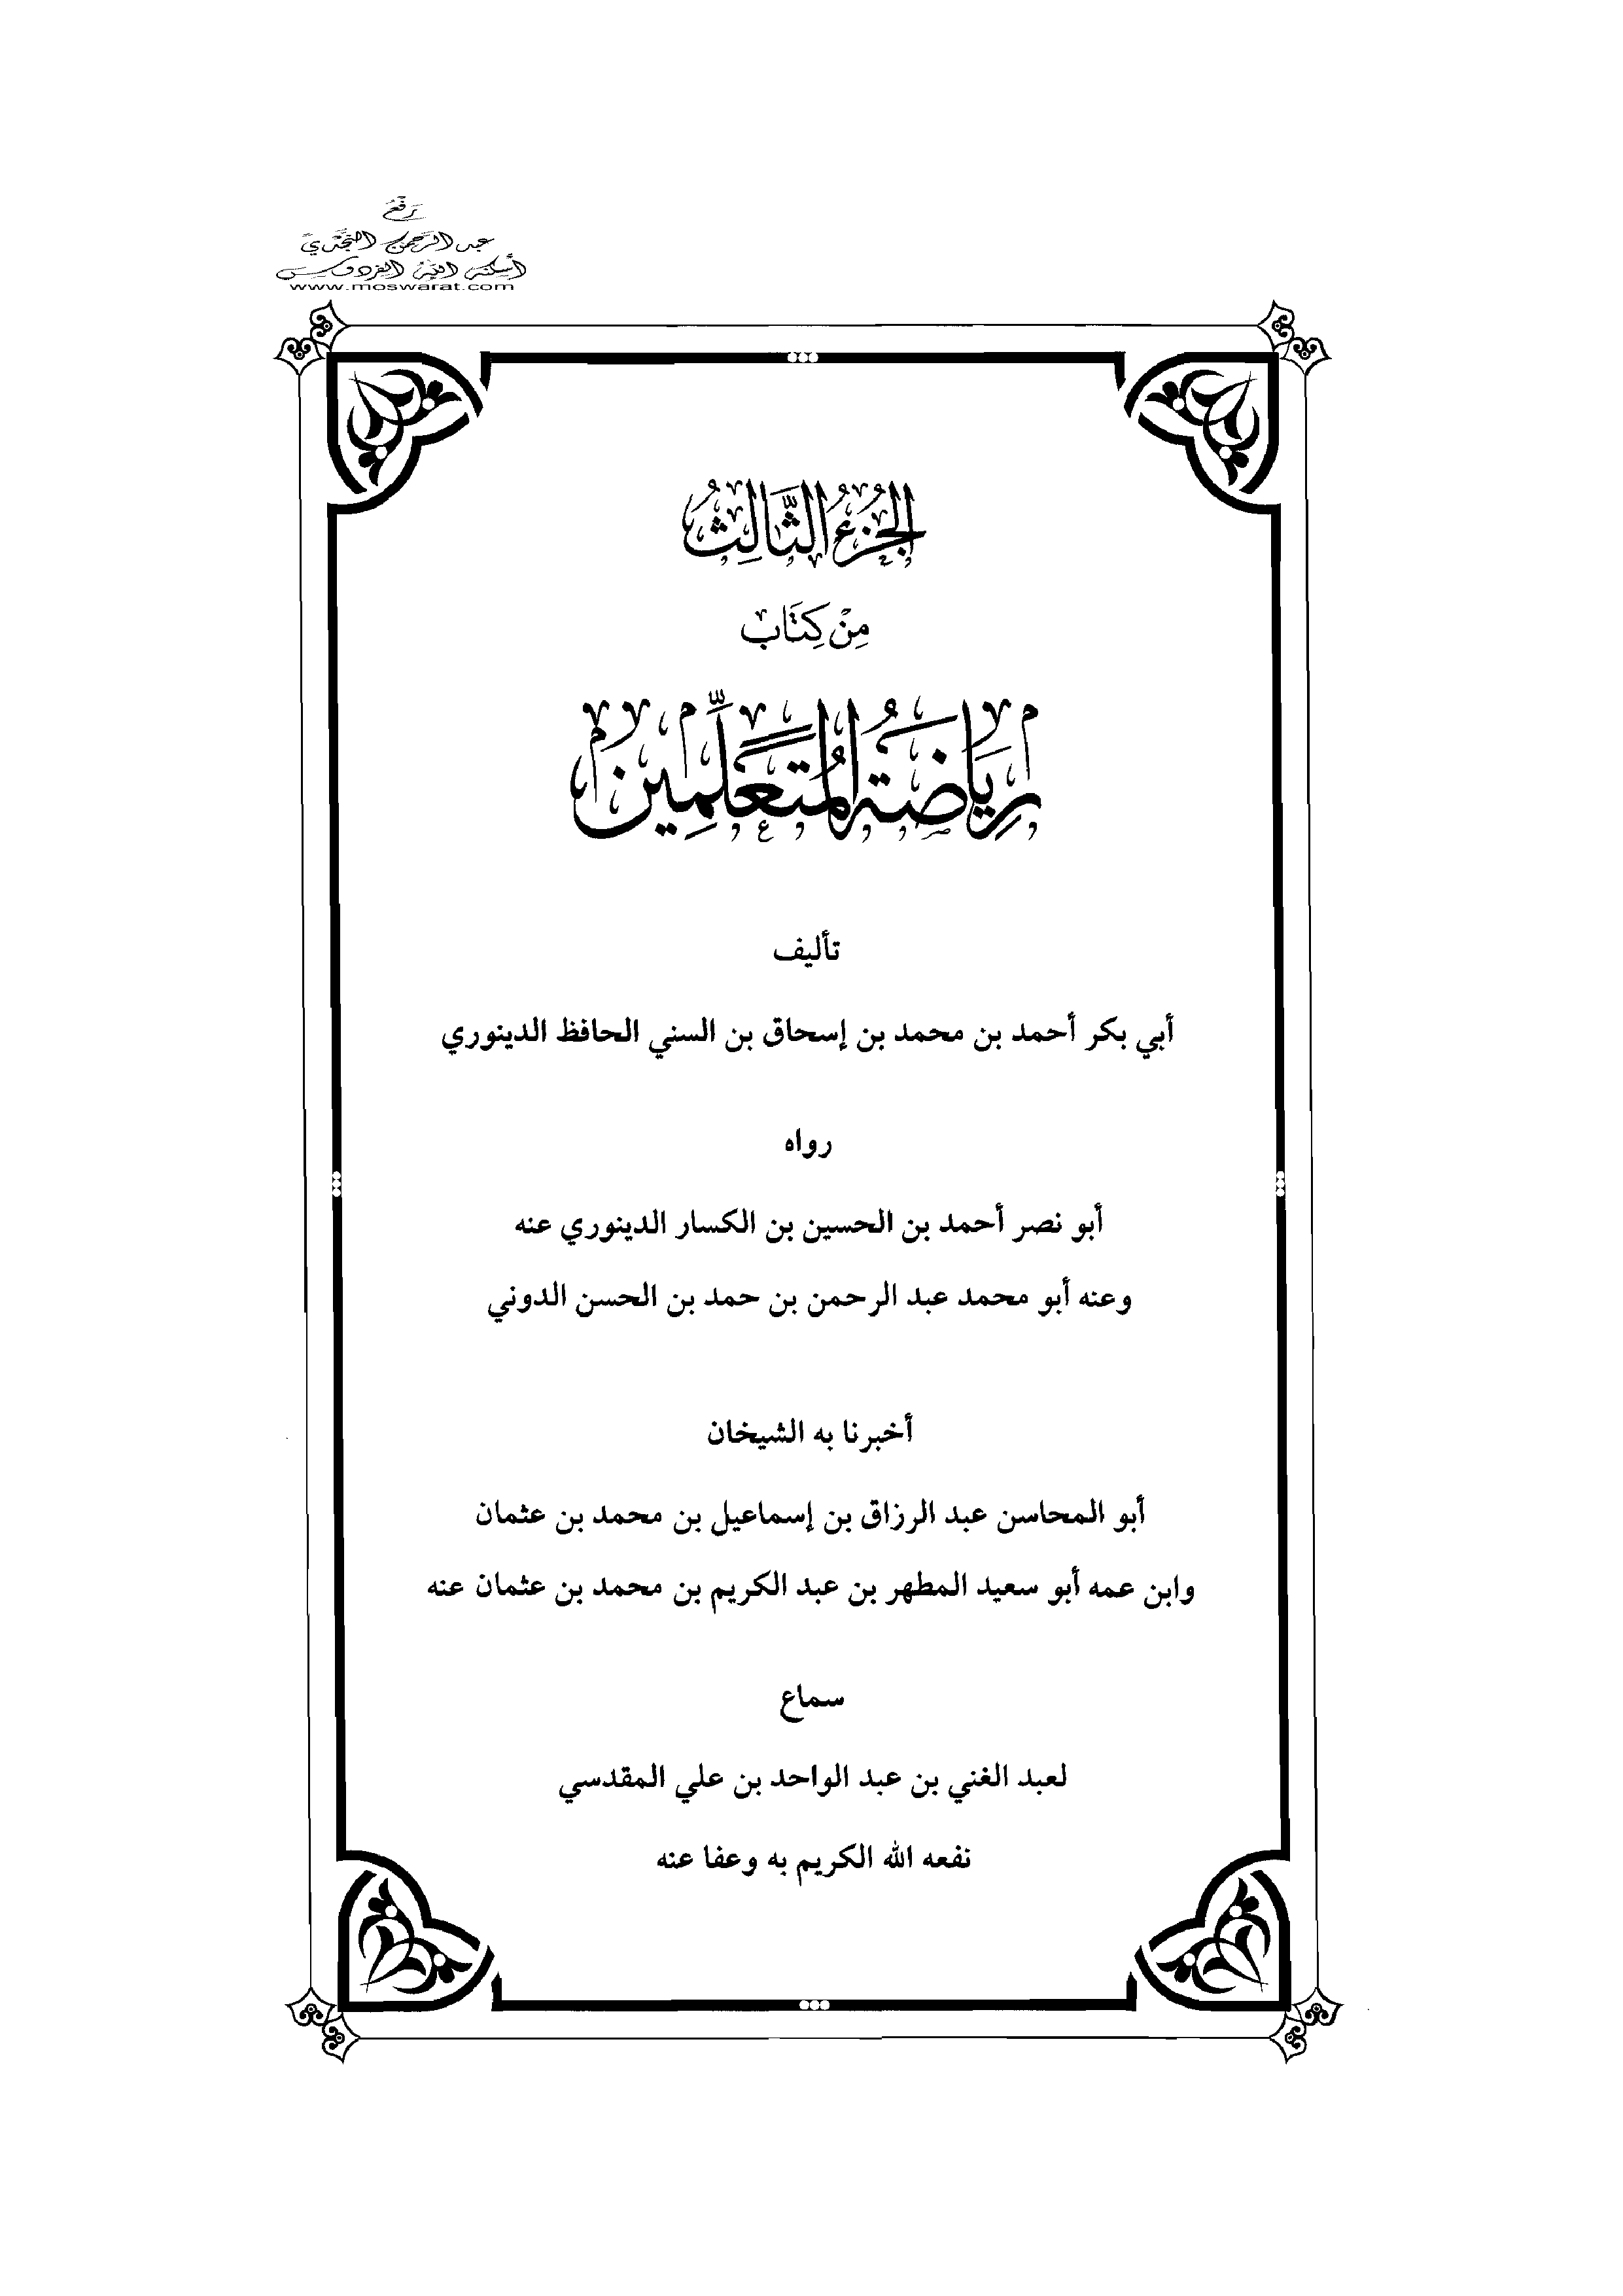 رفع
عبد الرحمن النجدي
أسكنه الله الفردوس
www.moswarat.com
الجُزءُ الثَّالِثُ
مِنْ كِتَاب
رِيَاضَةُ المُتَعَلِّمِين
تأليف
أبي بكر أحمد بن محمد بن إسحاق بن السني الحافظ الدينوري
رواه
أبو نصر أحمد بن الحسين بن الكسار الدينوري عنه
وعنه أبو محمد عبد الرحمن بن حمد بن الحسن الدوني
أخبرنا به الشيخان
أبو المحاسن عبد الرزاق بن إسماعيل بن محمد بن عثمان
وابن عمه أبو سعيد المطهر بن عبد الكريم بن محمد بن عثمان عنه
سماع
لعبد الغني بن عبد الواحد بن علي المقدسي
نفعه الله الكريم به وعفا عنه